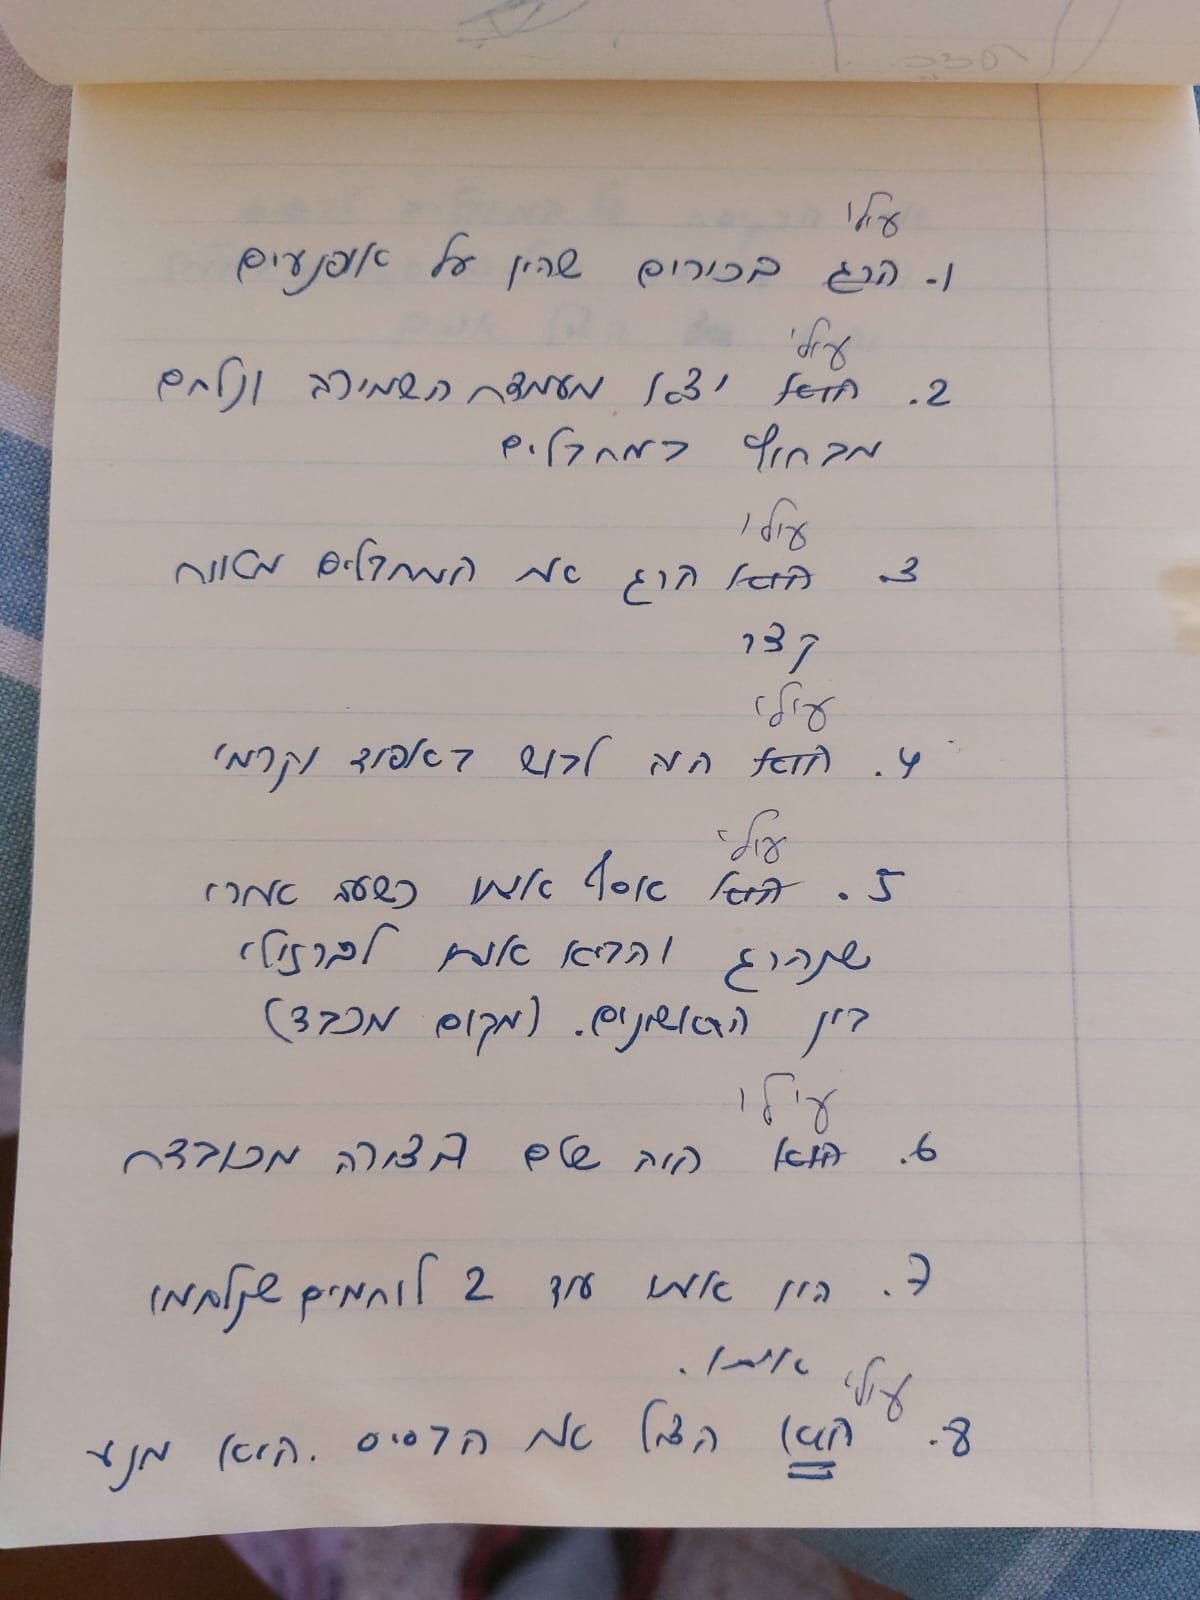 עילי
1. הרג בכירים שהיו על אופנועים
עילי
2. הוא יצא מעמדת השמירה ונלחם
מבחוץ במחבלים
עילי
3. הוא הרג את המחבלים מטווח
קצר
עילי
4. הוא היה לבוש באפוד וקרמי
עילי
5. הוא אסף אותו כשעב אחרי
שנהרג והביא אותו לברזילי
בין הראשונים. (מקום מכבד)
עילי
6. הוא היה שלם בצורה מכובדת
7. היו אותו עוד 2 לוחמים שנלחמו
איתו.
עילי
8. הוא הציל את הבסיס. הוא מנע